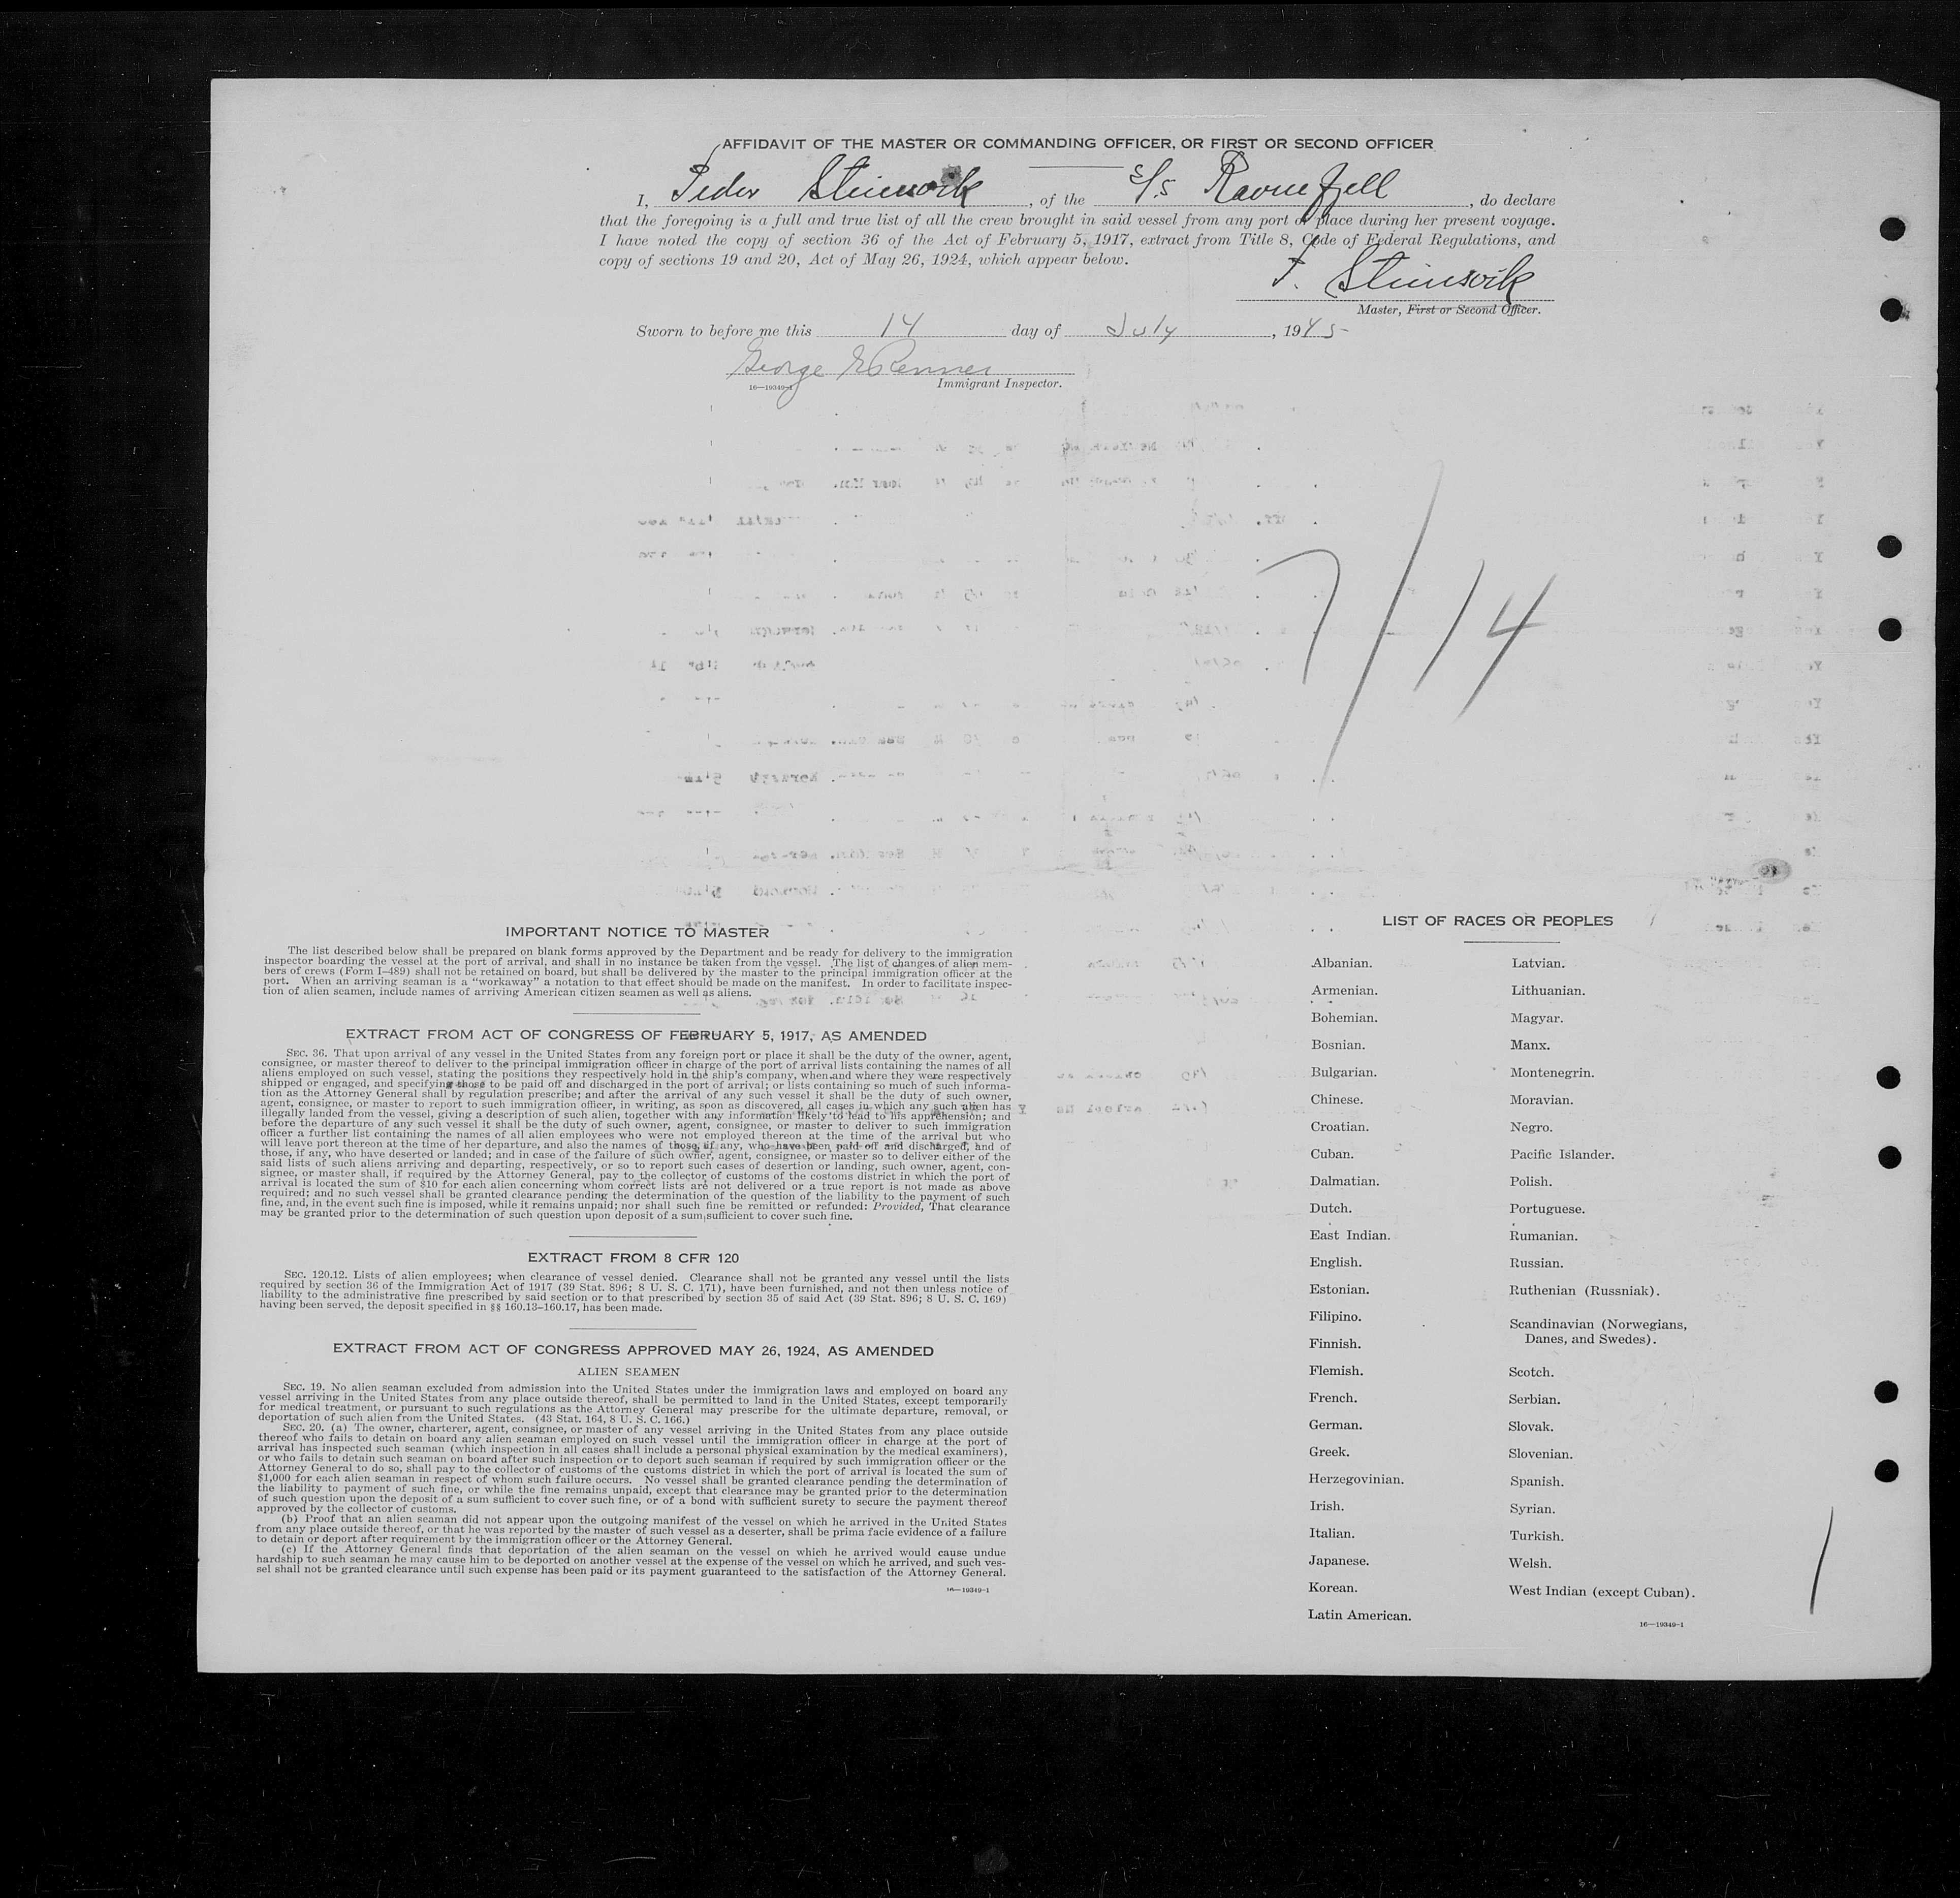 AFFIDAVIT OF THE MASTER OR COMMANDING OFFICER, OR FIRST OR SECOND OFFICER
I, Peder Steinsvik, of the S/S Ravnefjell, do declare
that the foregoing is a full and true list of all the crew brought in said vessel from any port or place during her present voyage.
I have noted the copy of section 36 of the Act of February 5, 1917, extract from Title 8, Code of Federal Regulations, and
copy of sections 19 and 20, Act of May 26, 1924, which appear below.
P. Steinsvik
Master, First or Second Officer.
Sworn to before me this 14 day of July, 1945
George
16—19349-1 Immigrant Inspector.
7/14
IMPORTANT NOTICE TO MASTER
The list described below shall be prepared on blank forms approved by the Department and be ready for delivery to the immigration
inspector boarding the vessel at the port of arrival, and shall in no instance be taken from the vessel. The list of changes of alien mem-
bers of crews (Form I–489) shall not be retained on board, but shall be delivered by the master to the principal immigration officer at the
port. When an arriving seaman is a "workaway" a notation to that effect should be made on the manifest. In order to facilitate inspec-
tion of alien seamen, include names of arriving American citizen seamen as well as aliens.
EXTRACT FROM ACT OF CONGRESS OF FEBRUARY 5, 1917, AS AMENDED
SEC. 36. That upon arrival of any vessel in the United States from any foreign port or place it shall be the duty of the owner, agent,
consignee, or master thereof to deliver to the principal immigration officer in charge of the port of arrival lists containing the names of all
aliens employed on such vessel, stating the positions they respectively hold in the ship's company, when and where they were respectively
shipped or engaged, and specifying those to be paid off and discharged in the port of arrival; or lists containing so much of such informa-
tion as the Attorney General shall by regulation prescribe; and after the arrival of any such vessel it shall be the duty of such owner,
agent, consignee, or master to report to such immigration officer, in writing, as soon as discovered, all cases in which any such alien has
illegally landed from the vessel, giving a description of such alien, together with any information likely to lead to his apprehension; and
before the departure of any such vessel it shall be the duty of such owner, agent, consignee, or master to deliver to such immigration
officer a further list containing the names of all alien employees who were not employed thereon at the time of the arrival but who
will leave port thereon at the time of her departure, and also the names of those, if any, who have been paid off and discharged, and of
those, if any, who have deserted or landed; and in case of the failure of such owner, agent, consignee, or master so to deliver either of the
said lists of such aliens arriving and departing, respectively, or so to report such cases of desertion or landing, such owner, agent, con-
signee, or master shall, if required by the Attorney General, pay to the collector of customs of the costoms district in which the port of
arrival is located the sum of $10 for each alien concerning whom correct lists are not delivered or a true report is not made as above
required; and no such vessel shall be granted clearance pending the determination of the question of the liability to the payment of such
fine, and, in the event such fine is imposed, while it remains unpaid; nor shall such fine be remitted or refunded: Provided, That clearance
may be granted prior to the determination of such question upon deposit of a sum sufficient to cover such fine.
EXTRACT FROM 8 CFR 120
SEC. 120.12. Lists of alien employees; when clearance of vessel denied. Clearance shall not be granted any vessel until the lists
required by section 36 of the Immigration Act of 1917 (39 Stat. 896; 8 U. S. C. 171), have been furnished, and not then unless notice of
liability to the administrative fine prescribed by said section or to that prescribed by section 35 of said Act (39 Stat. 896; 8 U. S. C. 169)
having been served, the deposit specified in §§ 160.13–160.17, has been made.
EXTRACT FROM ACT OF CONGRESS APPROVED MAY 26, 1924, AS AMENDED
ALIEN SEAMEN
SEC. 19. No alien seaman excluded from admission into the United States under the immigration laws and employed on board any
vessel arriving in the United States from any place outside thereof, shall be permitted to land in the United States, except temporarily
for medical treatment, or pursuant to such regulations as the Attorney General may prescribe for the ultimate departure, removal, or
deportation of such alien from the United States. (43 Stat. 164, 8 U. S. C. 166.)
SEC. 20. (a) The owner, charterer, agent, consignee, or master of any vessel arriving in the United States from any place outside
thereof who fails to detain on board any alien seaman employed on such vessel until the immigration officer in charge at the port of
arrival has inspected such seaman (which inspection in all cases shall include a personal physical examination by the medical examiners),
or who fails to detain such seaman on board after such inspection or to deport such seaman if required by such immigration officer or the
Attorney General to do so, shall pay to the collector of customs of the customs district in which the port of arrival is located the sum of
$1,000 for each alien seaman in respect of whom such failure occurs. No vessel shall be granted clearance pending the determination of
the liability to payment of such fine, or while the fine remains unpaid, except that clearance may be granted prior to the determination
of such question upon the deposit of a sum sufficient to cover such fine, or of a bond with sufficient surety to secure the payment thereof
approved by the collector of customs.
(b) Proof that an alien seaman did not appear upon the outgoing manifest of the vessel on which he arrived in the United States
from any place outside thereof, or that he was reported by the master of such vessel as a deserter, shall be prima facie evidence of a failure
to detain or deport after requirement by the immigration officer or the Attorney General.
(c) If the Attorney General finds that deportation of the alien seaman on the vessel on which he arrived would cause undue
hardship to such seaman he may cause him to be deported on another vessel at the expense of the vessel on which he arrived, and such ves-
sel shall not be granted clearance until such expense has been paid or its payment guaranteed to the satisfaction of the Attorney General.
16—19349-1
LIST OF RACES OR PEOPLES
Albanian.
Armenian.
Bohemian.
Bosnian.
Bulgarian.
Chinese.
Croatian.
Cuban.
Dalmatian.
Dutch.
East Indian.
English.
Estonian.
Filipino.
Finnish.
Flemish.
French.
German.
Greek.
Herzegovinian.
Irish.
Italian.
Japanese.
Korean.
Latin American.
Latvian.
Lithuanian.
Magyar.
Manx.
Montenegrin.
Moravian.
Negro.
Pacific Islander.
Polish.
Portuguese.
Rumanian.
Russian.
Ruthenian (Russniak).
Scandinavian (Norwegians,
Danes, and Swedes).
Scotch.
Serbian.
Slovak.
Slovenian.
Spanish.
Syrian.
Turkish.
Welsh.
West Indian (except Cuban).
16—19349-1